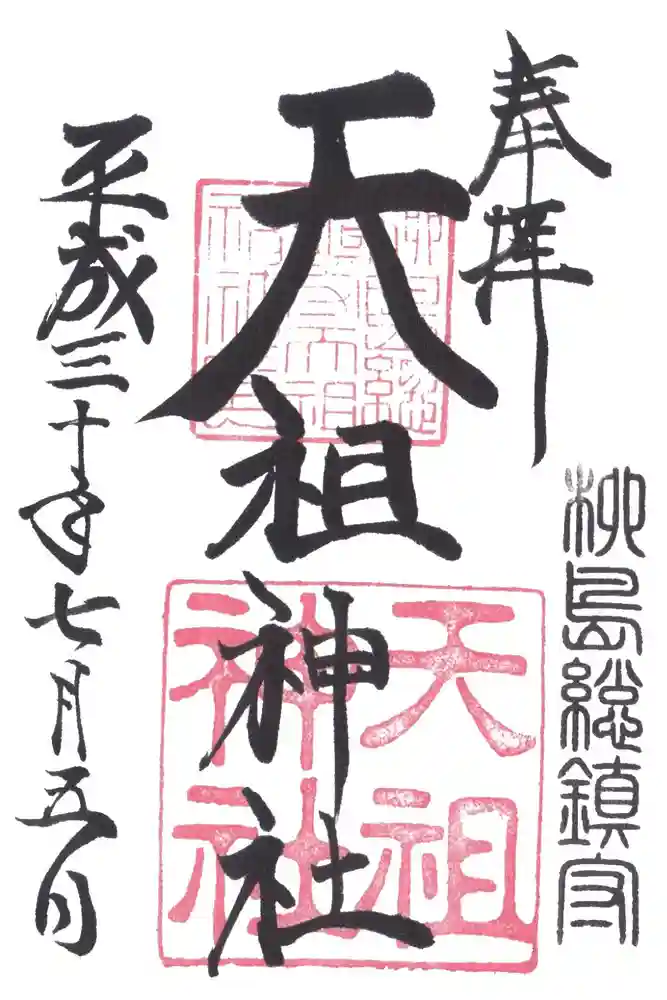 奉拝
柳島総鎮守
天祖神社
天祖
神社
平成三十年七月五日